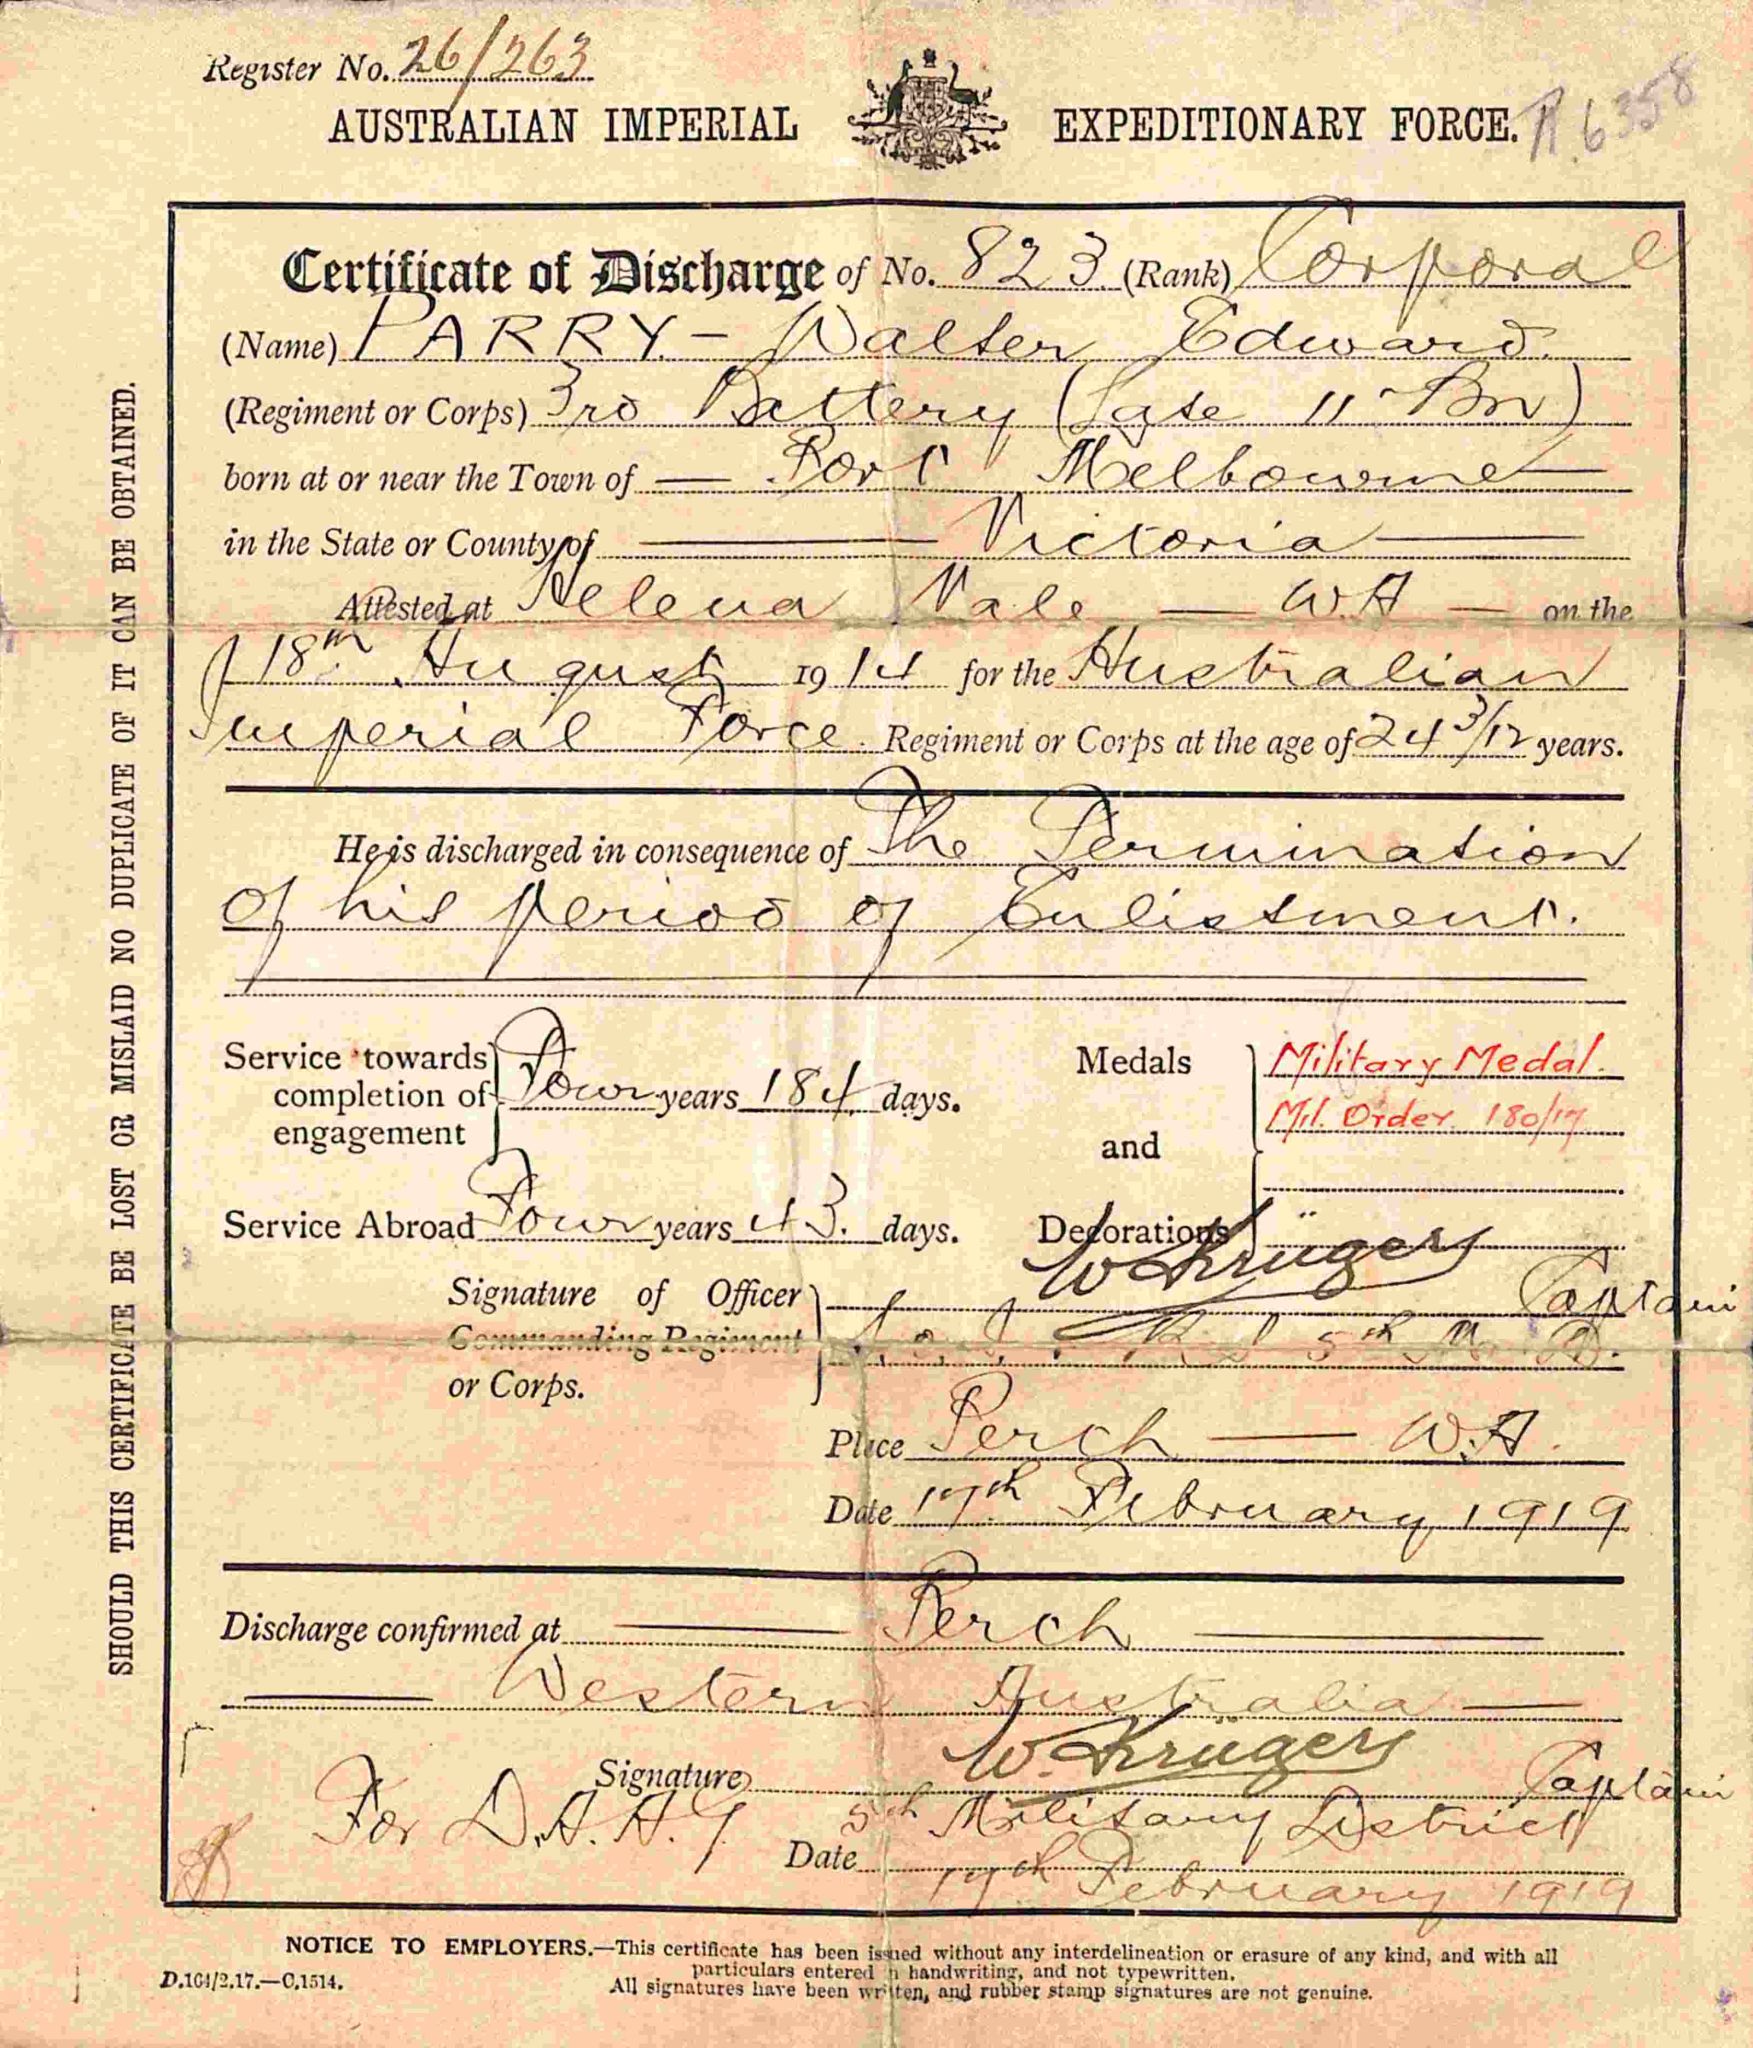 Register No. 26/263
AUSTRALIAN IMPERIAL EXPEDITIONARY FORCE. R.6358
Certificate of Discharge of No. 823 (Rank) Corporal
(Name) PARRY - Walter Edward.
(Regiment or Corps) 3rd Battery (Late 11 Bn)
born at or near the Town of Port Melbourne
in the State or County of Victoria
Attested at Helena Vale - WA - on the
18th August 1914 for the Australian
Imperial Force. Regiment or Corps at the age of 24 3/12 years.
He is discharged in consequence of The Termination
of his period of Enlistment.
Service towards completion of engagement Four years 184 days.
Medals and Decorations Military Medal.
Mil. Order 180/17
Service Abroad Four years 43. days.
Signature of Officer Commanding Regiment or Corps. W Krügers Captain
5th M. D.
Place Perth - W.A.
Date 17th February 1919
Discharge confirmed at Perth
Western Australia
Signature W. Krügers Captain
For D.A.A.G. 5th Military District
Date 17th February 1919
SHOULD THIS CERTIFICATE BE LOST OR MISLAID NO DUPLICATE OF IT CAN BE OBTAINED.
NOTICE TO EMPLOYERS.—This certificate has been issued without any interdelineation or erasure of any kind, and with all
particulars entered in handwriting, and not typewritten.
D.164/2.17.—C.1514.
All signatures have been written, and rubber stamp signatures are not genuine.